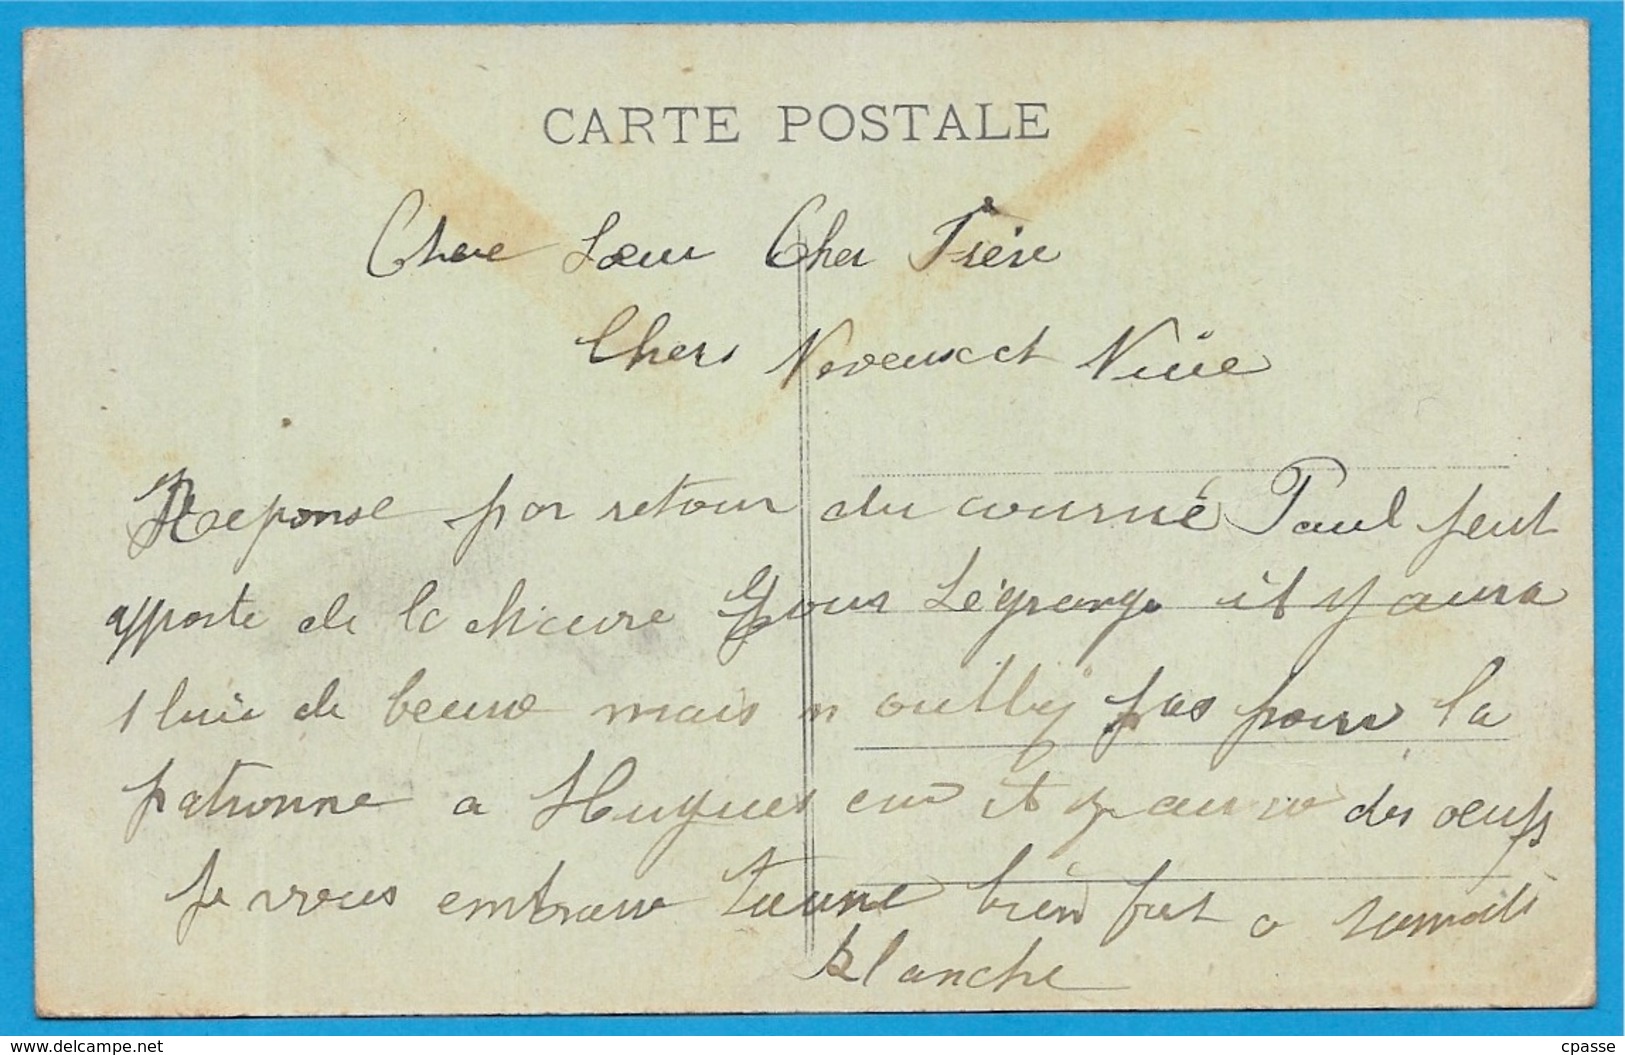 CARTE POSTALE
Chere Soeur Cher Frère
Chers Neveux et Niéce
Reponse par retour du courrié Paul peut
apporte de la chicure pour Légrange it y aura
1 luie de beure mais n oublly pas pour la
patronne a Hugues car it y aura des oeufs
Je vous embrasse tousne bien fort a samedi
Blanche
www.delcampe.net
cpasse